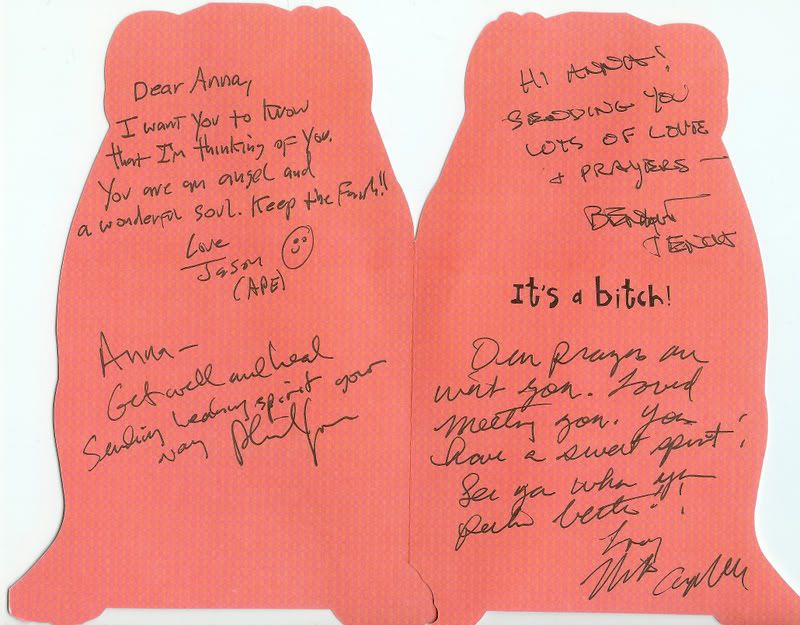 Dear Anna,
I want you to know
that I'm thinking of you.
You are an angel and
a wonderful soul. Keep the Faith!!
Love
Jason
(APE)
Anna—
Get well and heal
Sending healing spirit your
way
HI ANNA!
SENDING YOU
LOTS OF LOVE
+ PRAYERS—
BENMONT
TENCH
It's a bitch!
Our prayers are
with you. Loved
meeting you. You
have a sweet spirit!
See ya when ya
feelin better!!
Mike Campbell